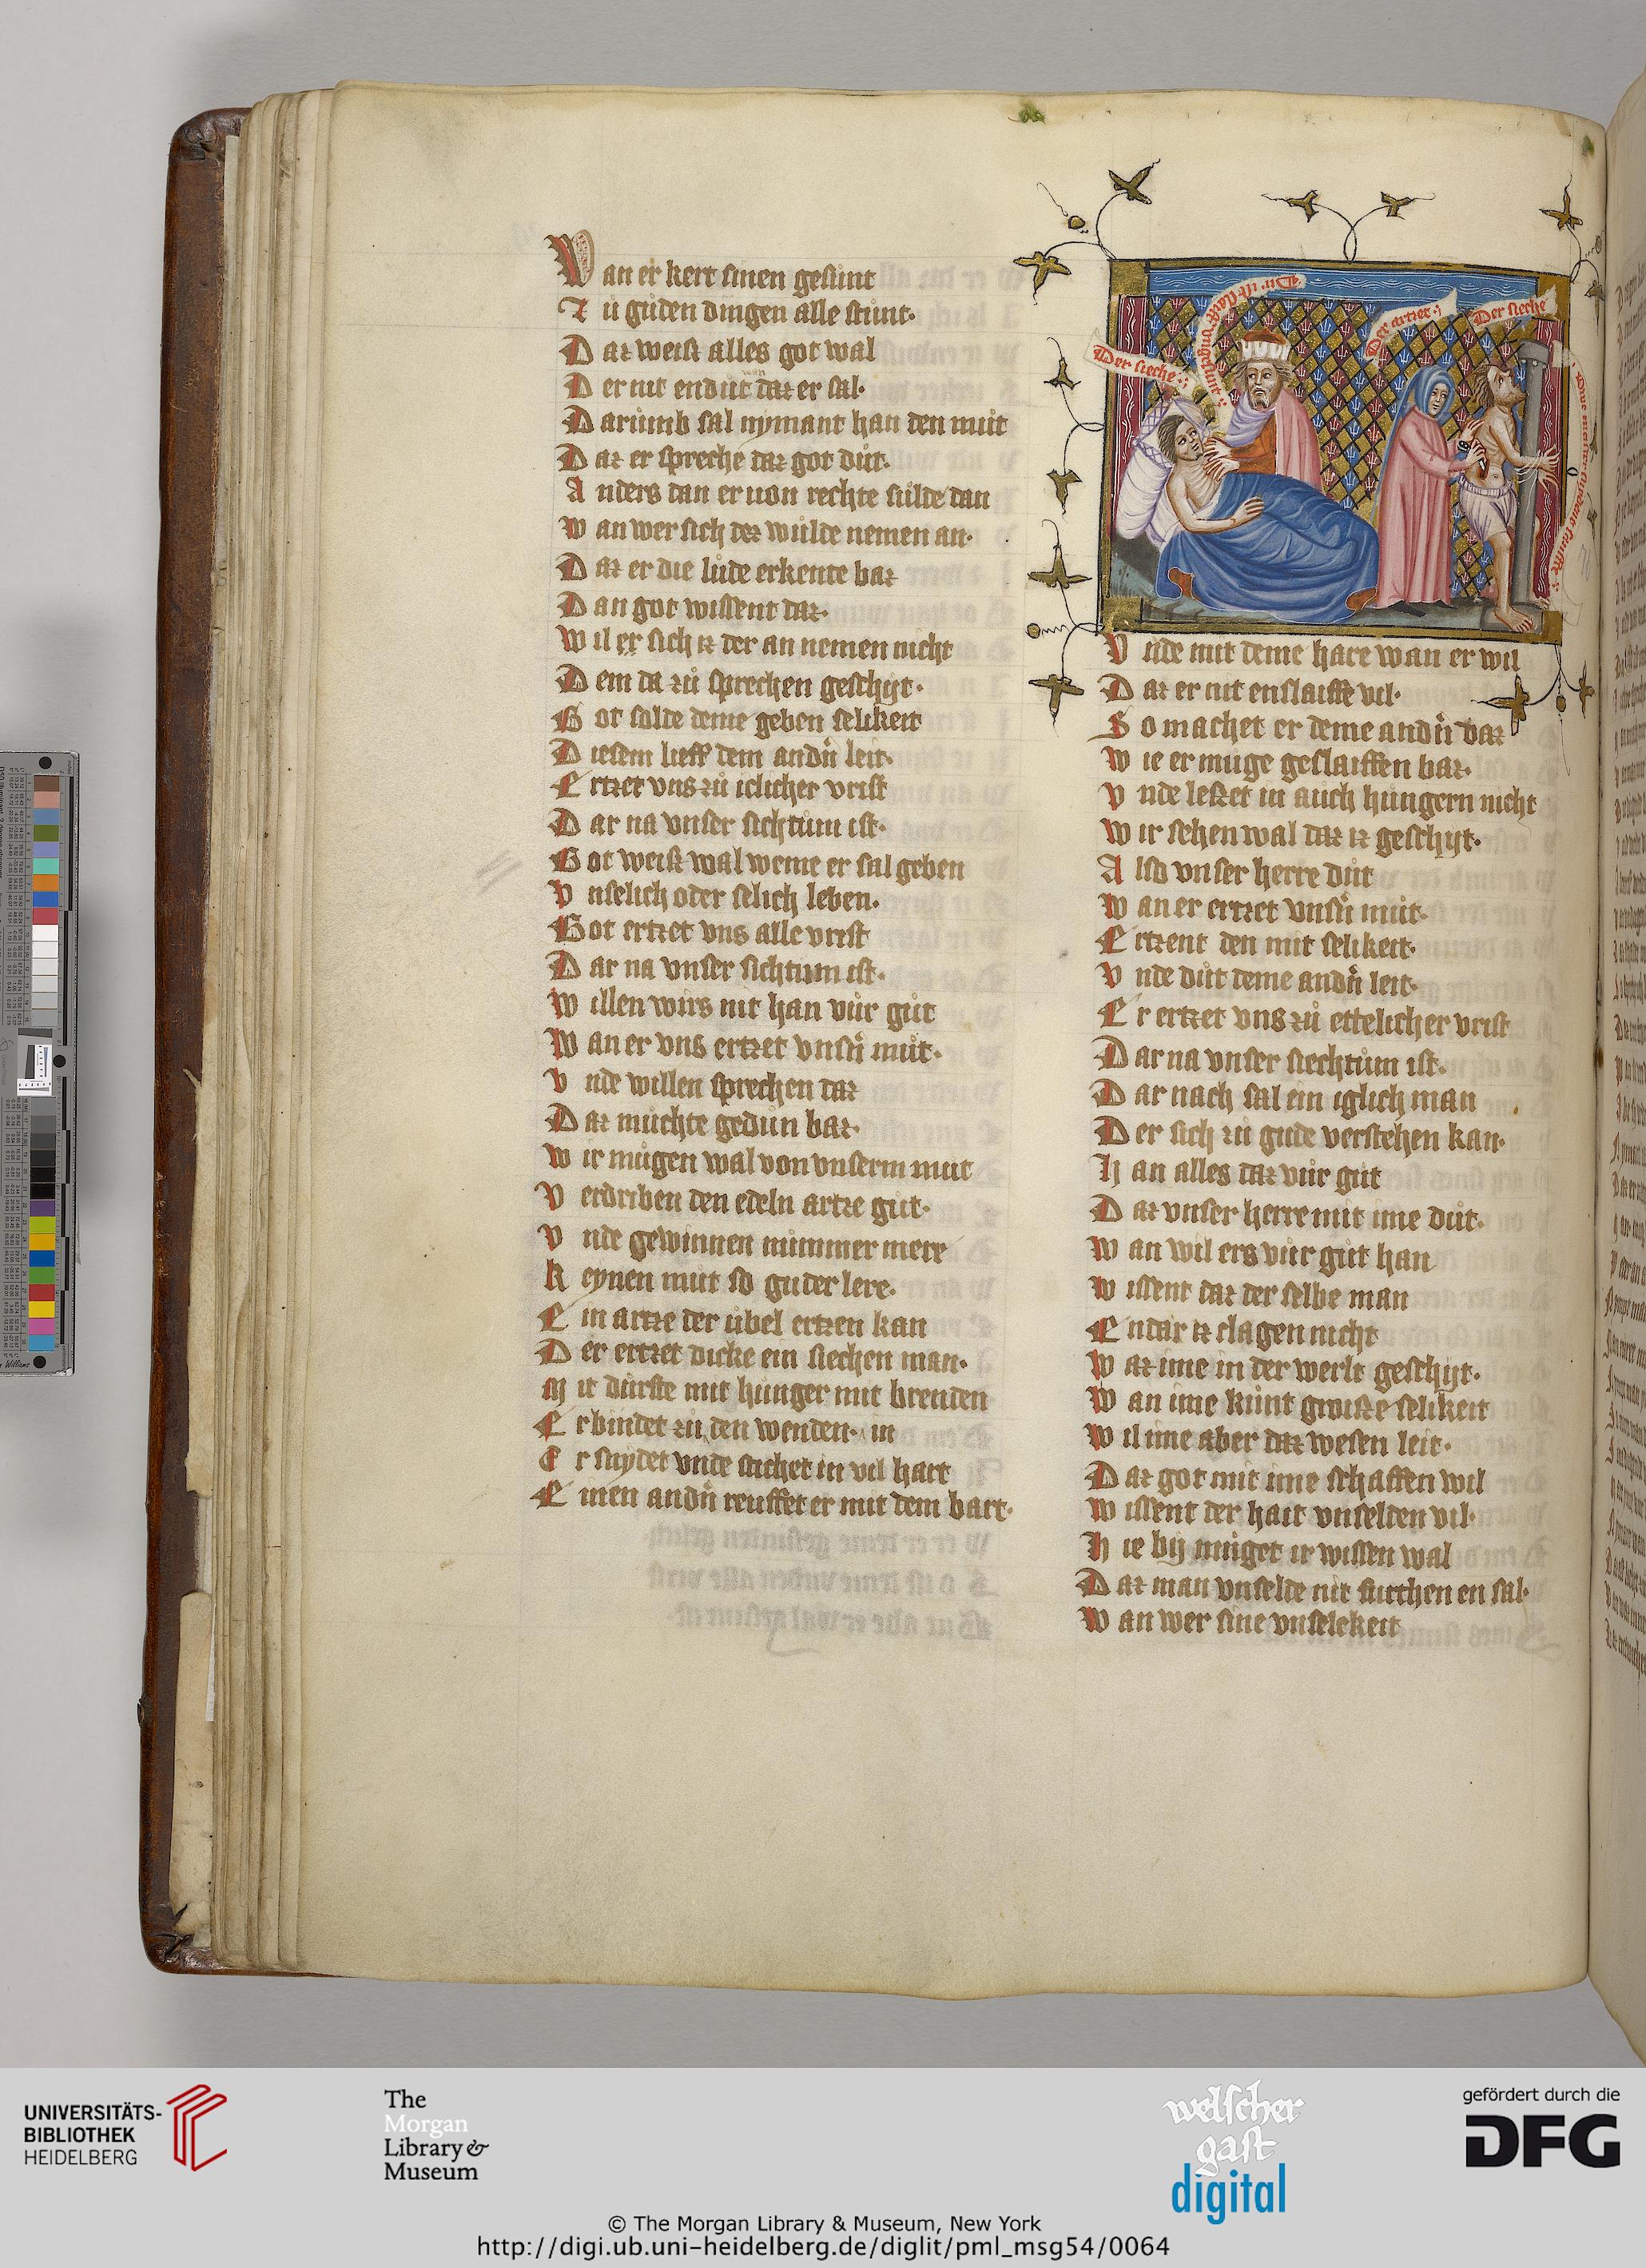 Wan er kert sinen gesunt
Zu guden dingen alle stunt.
Daz weist alles got wal
Der nit endut daz er sal.
Darumb sal nymant han den mut
Daz er spreche daz got dut.
Anders dan er von rechte sulde dan
Wan wer sich dez wulde nemen an.
Daz er die lude erkente baz
Dan got wissent daz.
Wil er sich iz der an nemen nicht
Dem da zu sprechen geschyt.
Got solde deme geben selikeit
Diesem lieff dem andn leit.
Ertzet vns zu iclicher vrist
Dar na vnser sichtum ist.
Got weist wal weme er sal geben
Vnselich oder selich leben.
Got ertzet vns alle vrist
Dar na vnser sichtum ist.
Willen wirs nit han vur gut
Wan er vns ertzet vnsn mut.
Vnde willen sprechen daz
Daz muchte gedun baz.
Wir mugen wal von vnserm mut
Verdriben den edeln artze gut.
Vnde gewinnen nummer mere
Keynen mut so guder lere.
Ein artze der ubel ertzen kan
Der ertzet dicke ein siechen man.
Mit durste mit hunger mit brenden
Er bindet zu den wenden. in
Er snydet vnde stichet in vil hart
Einen andn reuffet er mit dem bart.
Der sieche
Der artzet
Der sieche
Vnde mit deme hare wan er wil
Daz er nit enslaiffe vil.
So machet er deme andn daz
Wie er muge geslaiffen baz.
Vnde leszet in auch hungern nicht
Wir sehen wal daz iz geschyt.
Also vnser herre dut
Wan er ertzet vnsn mut.
Ertzent den mit selikeit.
Vnde dut deme andn leit.
Er ertzet vns zu ettelicher vrist
Dar na vnser siechtum ist.
Dar nach sal ein iglich man
Der sich zu gude verstehen kan.
Han alles daz vur gut
Daz vnser herre mit ime dut.
Wan wil ers vur gut han
Wissent daz der selbe man
Endar iz clagen nicht
Waz ime in der werlt geschyt.
Wan ime kumt groisze selikeit
Wil ime aber daz wesen leit.
Daz got mit ime schaffen wil
Wissent der hait vnselden vil.
Hie by muget ir wissen wal
Daz man vnselde nit furchen en sal.
Wan wer sine vnselekeit
UNIVERSITÄTS-
BIBLIOTHEK
HEIDELBERG
The
Morgan
Library &
Museum
welscher
gast
digital
gefördert durch die
DFG
© The Morgan Library & Museum, New York
http://digi.ub.uni-heidelberg.de/diglit/pml_msg54/0064